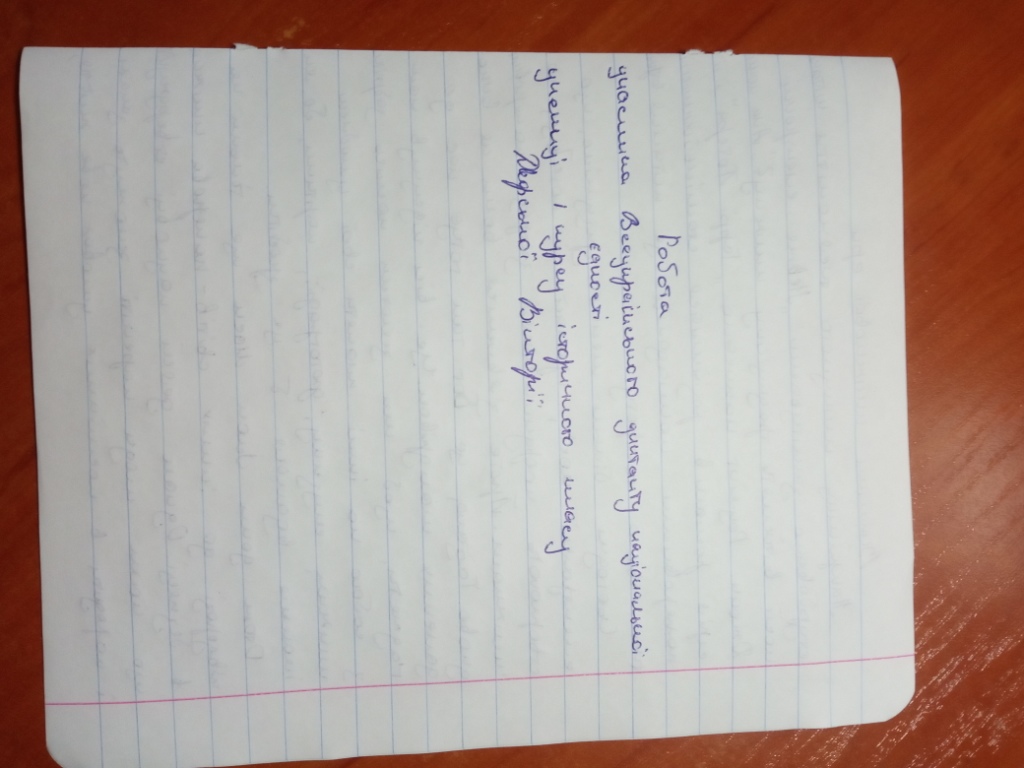 Робота
учасника Всеукраїнського диктанту національної
єдності
учениці І курсу історичного класу
Вікторії